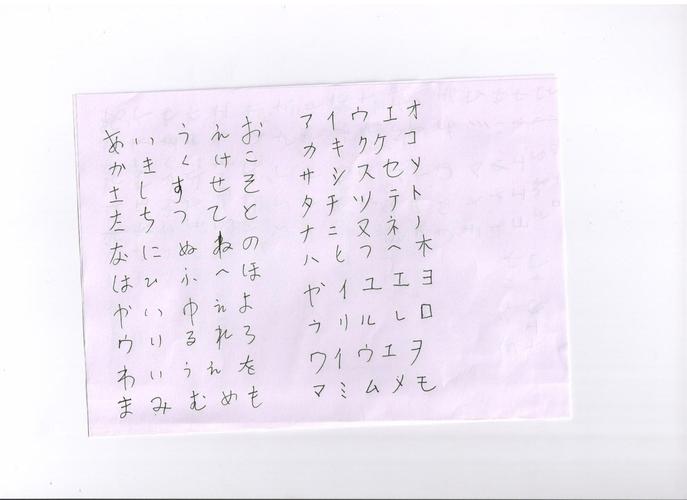 あいうえお
かきくけこ
さしすせそ
たちつてと
なにぬねの
はひふへほ
やいゆえよ
らりるれろ
わいうえを
まみむめも
アイウエオ
カキクケコ
サシスセソ
タチツテト
ナニヌネノ
ハヒフヘホ
ヤイユエヨ
ラリルレロ
ワイウエヲ
マミムメモ